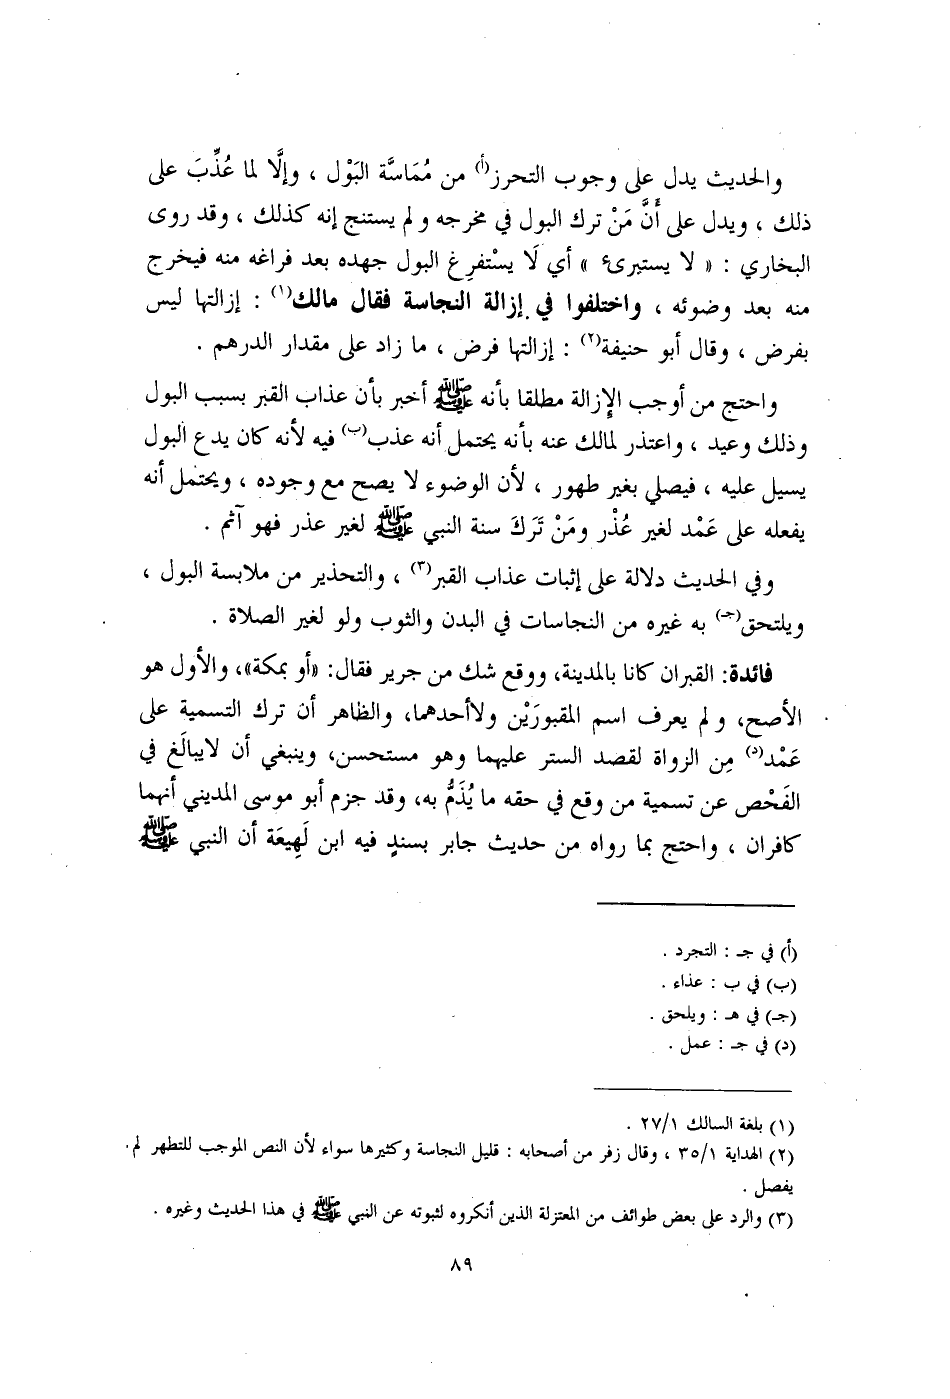 والحديث يدل على وجوب التحرز(أ) من مُمَاسَّة البَوْل ، وإلَّا لما عُذِّبَ على
ذلك ، ويدل على أَنَّ مَنْ ترك البول في مخرجه ولم يستنج إنه كذلك ، وقد روى
البخاري : « لا يستبرىء » أي لَا يسْتفرِغ البول جهده بعد فراغه منه فيخرج
منه بعد وضوئه ، واختلفوا في إزالة النجاسة فقال مالك(١) : إزالتها ليس
بفرض ، وقال أبو حنيفة(٢) : إزالتها فرض ، ما زاد على مقدار الدرهم .
واحتج من أوجب الإزالة مطلقا بأنه ﷺ أخبر بأن عذاب القبر بسبب البول
وذلك وعيد ، واعتذر لمالك عنه بأنه يحتمل أنه عذب(ب) فيه لأنه كان يدع البول
يسيل عليه ، فيصلي بغير طهور ، لأن الوضوء لا يصح مع وجوده ، ويحتمل أنه
يفعله على عَمْد لغير عُذْر ومَنْ تَرَكَ سنة النبي ﷺ لغير عذر فهو آثم .
وفي الحديث دلالة على إثبات عذاب القبر(٣) ، والتحذير من ملابسة البول ،
ويلتحق(جـ) به غيره من النجاسات في البدن والثوب ولو لغير الصلاة .
فائدة: القبران كانا بالمدينة، ووقع شك من جرير فقال: «أو بمكة»، والأول هو
الأصح، ولم يعرف اسم المقبورَيْن ولاأحدهما، والظاهر أن ترك التسمية على
عَمْد(د) مِن الرواة لقصد الستر عليهما وهو مستحسن، وينبغي أن لايبالَغ في
الفَحْص عن تسمية من وقع في حقه ما يُذَمُّ به، وقد جزم أبو موسى المديني أنهما
كافران ، واحتج بما رواه من حديث جابر بسندٍ فيه ابن لَهِيعَة أن النبي ﷺ
(أ) في جـ : التجرد .
(ب) في ب : عذاء .
(جـ) في هـ : ويلحق .
(د) في جـ : عمل .
(١) بلغة السالك ٢٧/١ .
(٢) الهداية ٣٥/١ ، وقال زفر من أصحابه : قليل النجاسة وكثيرها سواء لأن النص الموجب للتطهر لم
يفصل .
(٣) والرد على بعض طوائف من المعتزلة الذين أنكروه لثبوته عن النبي ﷺ في هذا الحديث وغيره .
٨٩